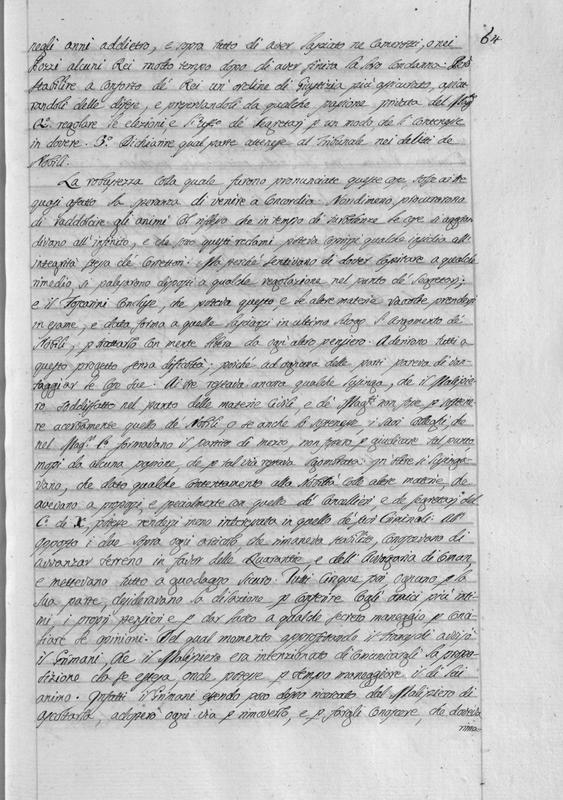 64
negli anni addietro, e sopra tutto di aver lasciato ne Camerotti, o nei
Pozzi alcuni Rei molto tempo dopo di aver finita la loro condanna:
stabilire a conforto de' Rei un' ordine di Giustizia più assicurato,
randoli delle difese, e preservandoli da qualche passione privata del
regolare le elezioni e de' Segretarj p un modo, che li contenesse
in dovere. 3.° Dichiarire qual parte attenesse al Tribunale nei delitti de
Nobili.
La robustezza colla quale furono pronunciate queste cose, tolse ai tre
quasi affatto la speranza di venire a Concordia. Nondimeno procurarono
di raddolcire gli animi col riflesso che in tempo di turbolenze le cose s'ingran
divano all'infinito, e che tra questi reclami poteva qualche all'
integrità stessa de' Correttori. Ma perché sentivano di dover a qualche
rimedio, si palesarono disposti a qualche regolazione nel punto de' Segretarj;
e il Foscarini Concluse, che poteva questo, e le altre materie vacanti prendersi
in esame, e data forma a quelle in ultimo luogo l'Argomento de'
Nobili, p trattarlo con mente libera da ogni altro pensiero. Aderirono tutti a
questo progetto senza difficoltà; poiché ad ognuna delle parti pareva di van
taggiar le cose sue. Ai tre restava ancora qualche lusinga, che il Malipie
ro soddisfatto nel punto delle materie Civili, e de' Mag.ti non fosse p sostene
re acremente quello de' Nobili, o se anche lo sostenesse i suoi Colleghi che
nel formavano il partito di mezzo, non fossero p giudicare tal punto
mossi da alcuna passione, che p tal via restava Gli altri si lusinga
vano, che dato qualche contentamento alla Nobiltà colle altre materie, che
avevano a proporsi, e specialmente con quella de' Cancellieri, e de' Segretarj del
C. di X, potesse rendersi meno interessata in quella de' suoi Criminali. All'
opposto i due sopra ogni articolo che rimaneva stabilito, Conoscevano di
avvanzar terreno in favor delle Quarantie, e dell' Avvogaria di Comun,
e mettevano tutto a guadagno sicuro. Tutti Cinque poi ognuno p la
sua parte, desideravano la dilazione p Conferire Cogli amici più inti
mi, i proprj pensieri e p dar luoco a qualche secreto maneggio p Conci
liare le opinioni. Del qual momento approfittando il avvisò
il Grimani, che il Malipiero era intenzionato di Comunicargli la propo
sizione da se estesa, onde potesse p tempo maneggiare il di lui
animo. Infatti il Grimani essendo poco dopo ricercato dal Malipiero di
ascoltarla, adoperò ogni via p rimoverlo, e p fargli Conoscere, che doveva
rima-